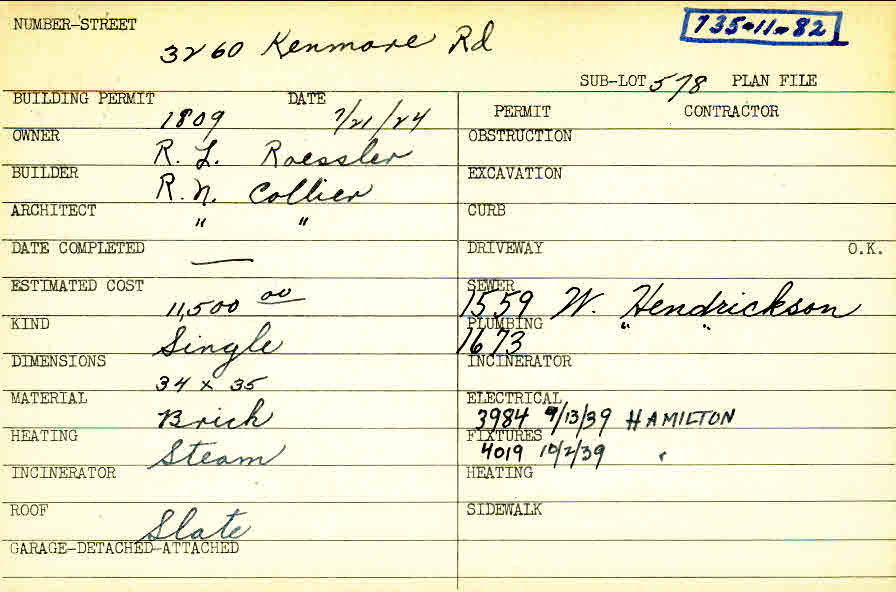 NUMBER-STREET
3260 Kenmore Rd
735-11-82
SUB-LOT 578 PLAN FILE
BUILDING PERMIT 1809 DATE 7/21/24
OWNER R. L. Roessler
BUILDER R. N. Collier
ARCHITECT " "
DATE COMPLETED —
ESTIMATED COST 11,500 00
KIND Single
DIMENSIONS 34 x 35
MATERIAL Brick
HEATING Steam
INCINERATOR
ROOF Slate
GARAGE-DETACHED-ATTACHED
PERMIT CONTRACTOR
OBSTRUCTION
EXCAVATION
CURB
DRIVEWAY O.K.
SEWER 1559 W. Hendrickson
PLUMBING 1673 " "
INCINERATOR
ELECTRICAL 3984 9/13/39 HAMILTON
FIXTURES 4019 10/2/39 "
HEATING
SIDEWALK